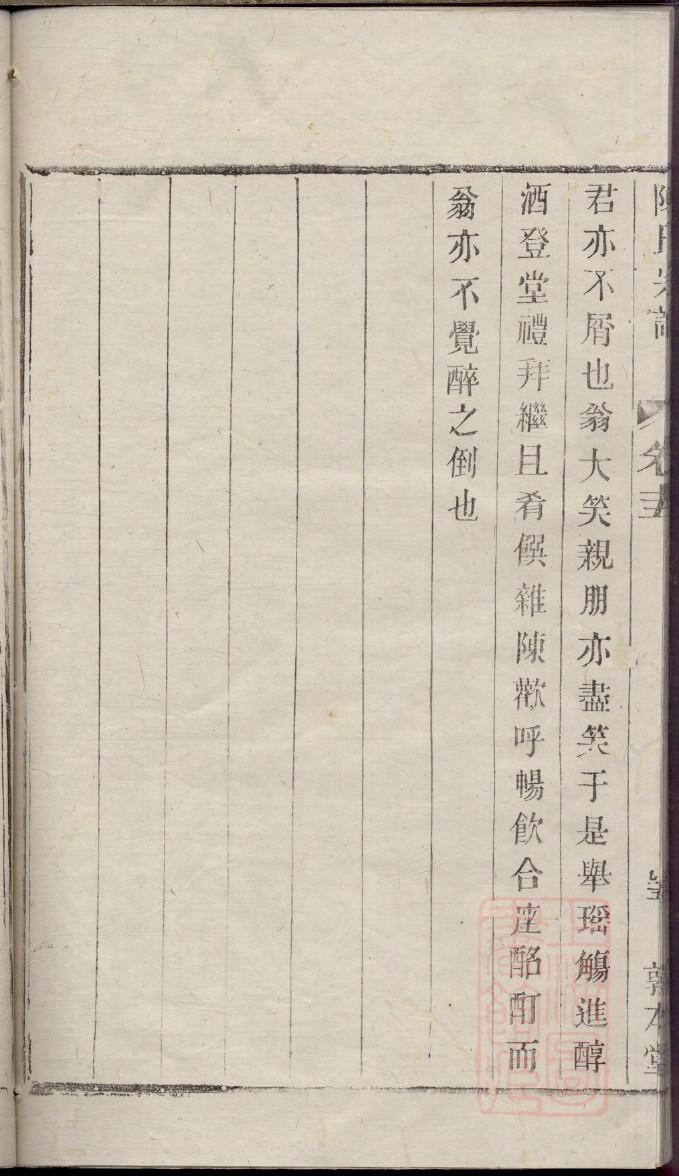 陳氏宗譜 卷五 敦本堂
君亦不屑也翁大笑親朋亦盡笑于是舉瑶觴進醇
酒登堂禮拜繼且肴饌雜陳歡呼暢飲合座酩酊而
翁亦不覺醉之倒也